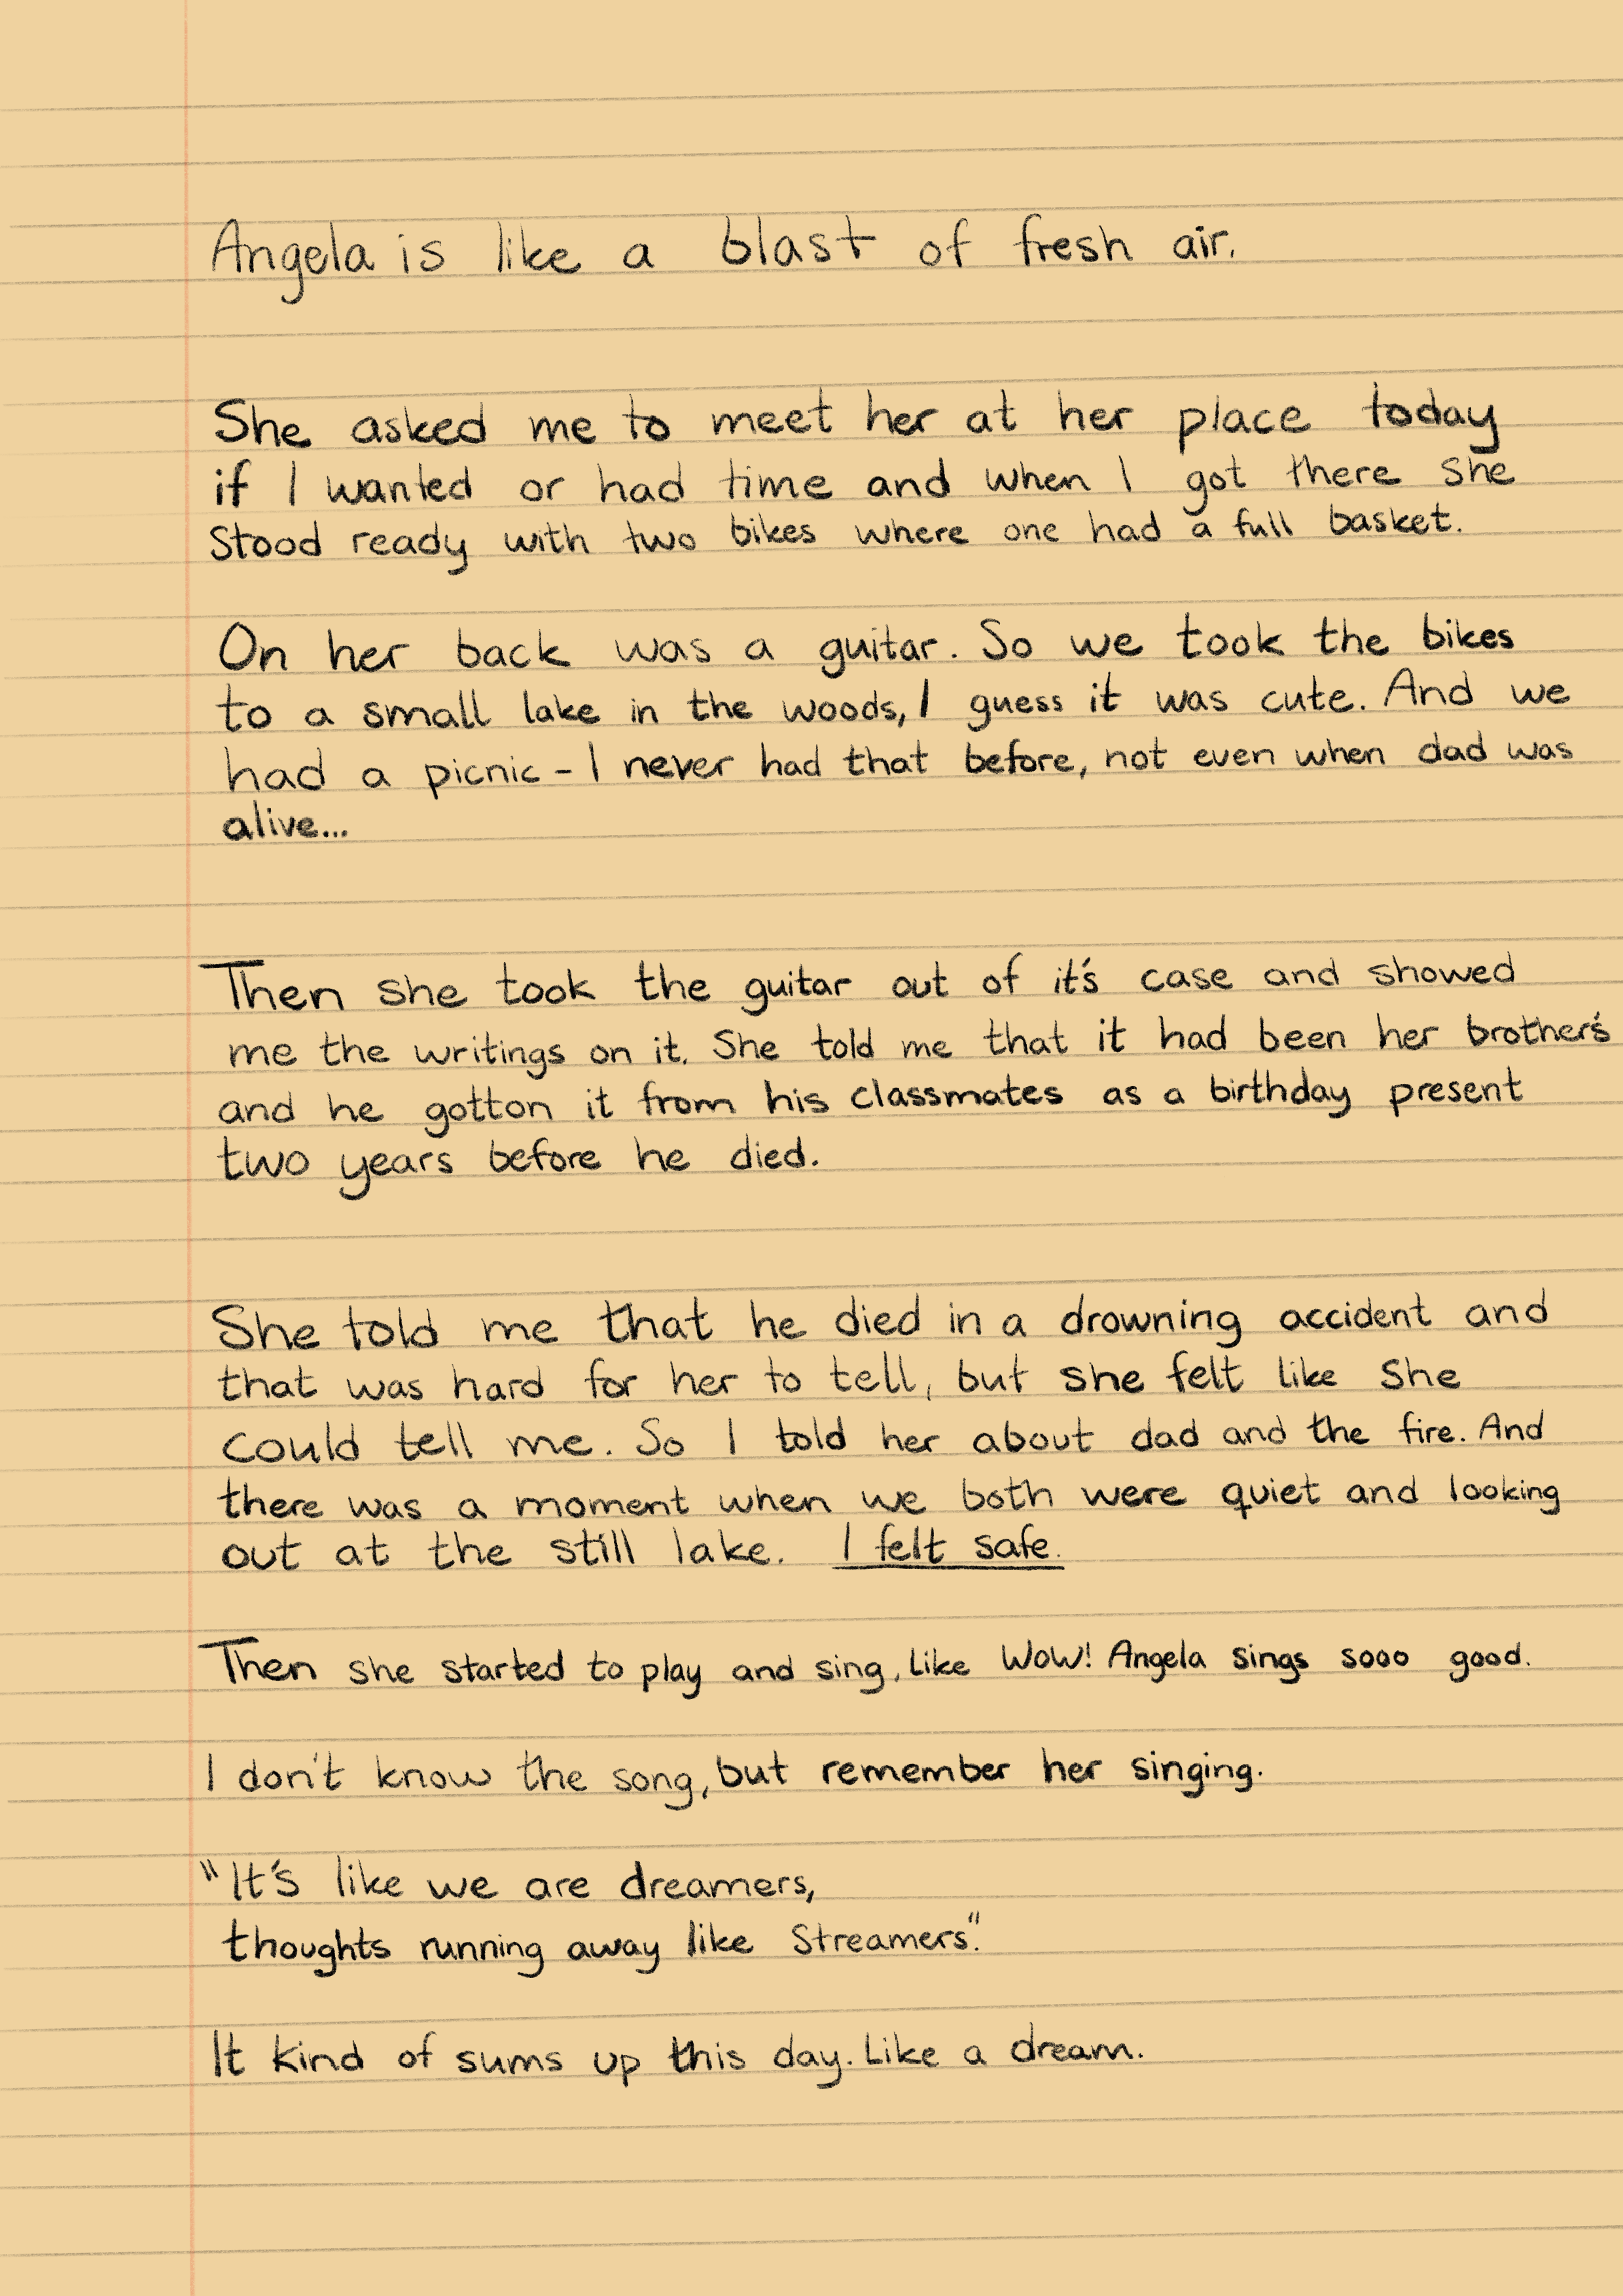 Angela is like a blast of fresh air.
She asked me to meet her at her place today
if I wanted or had time and when I got there she
stood ready with two bikes where one had a full basket.
On her back was a guitar. So we took the bikes
to a small lake in the woods, I guess it was cute. And we
had a picnic - I never had that before, not even when dad was
alive...
Then she took the guitar out of it's case and showed
me the writings on it. She told me that it had been her brother's
and he gotton it from his classmates as a birthday present
two years before he died.
She told me that he died in a drowning accident and
that was hard for her to tell, but she felt like she
could tell me. So I told her about dad and the fire. And
there was a moment when we both were quiet and looking
out at the still lake. I felt safe.
Then she started to play and sing, like WOW! Angela sings sooo good.
I don't know the song, but remember her singing.
"It's like we are dreamers,
thoughts running away like streamers."
It kind of sums up this day. Like a dream.